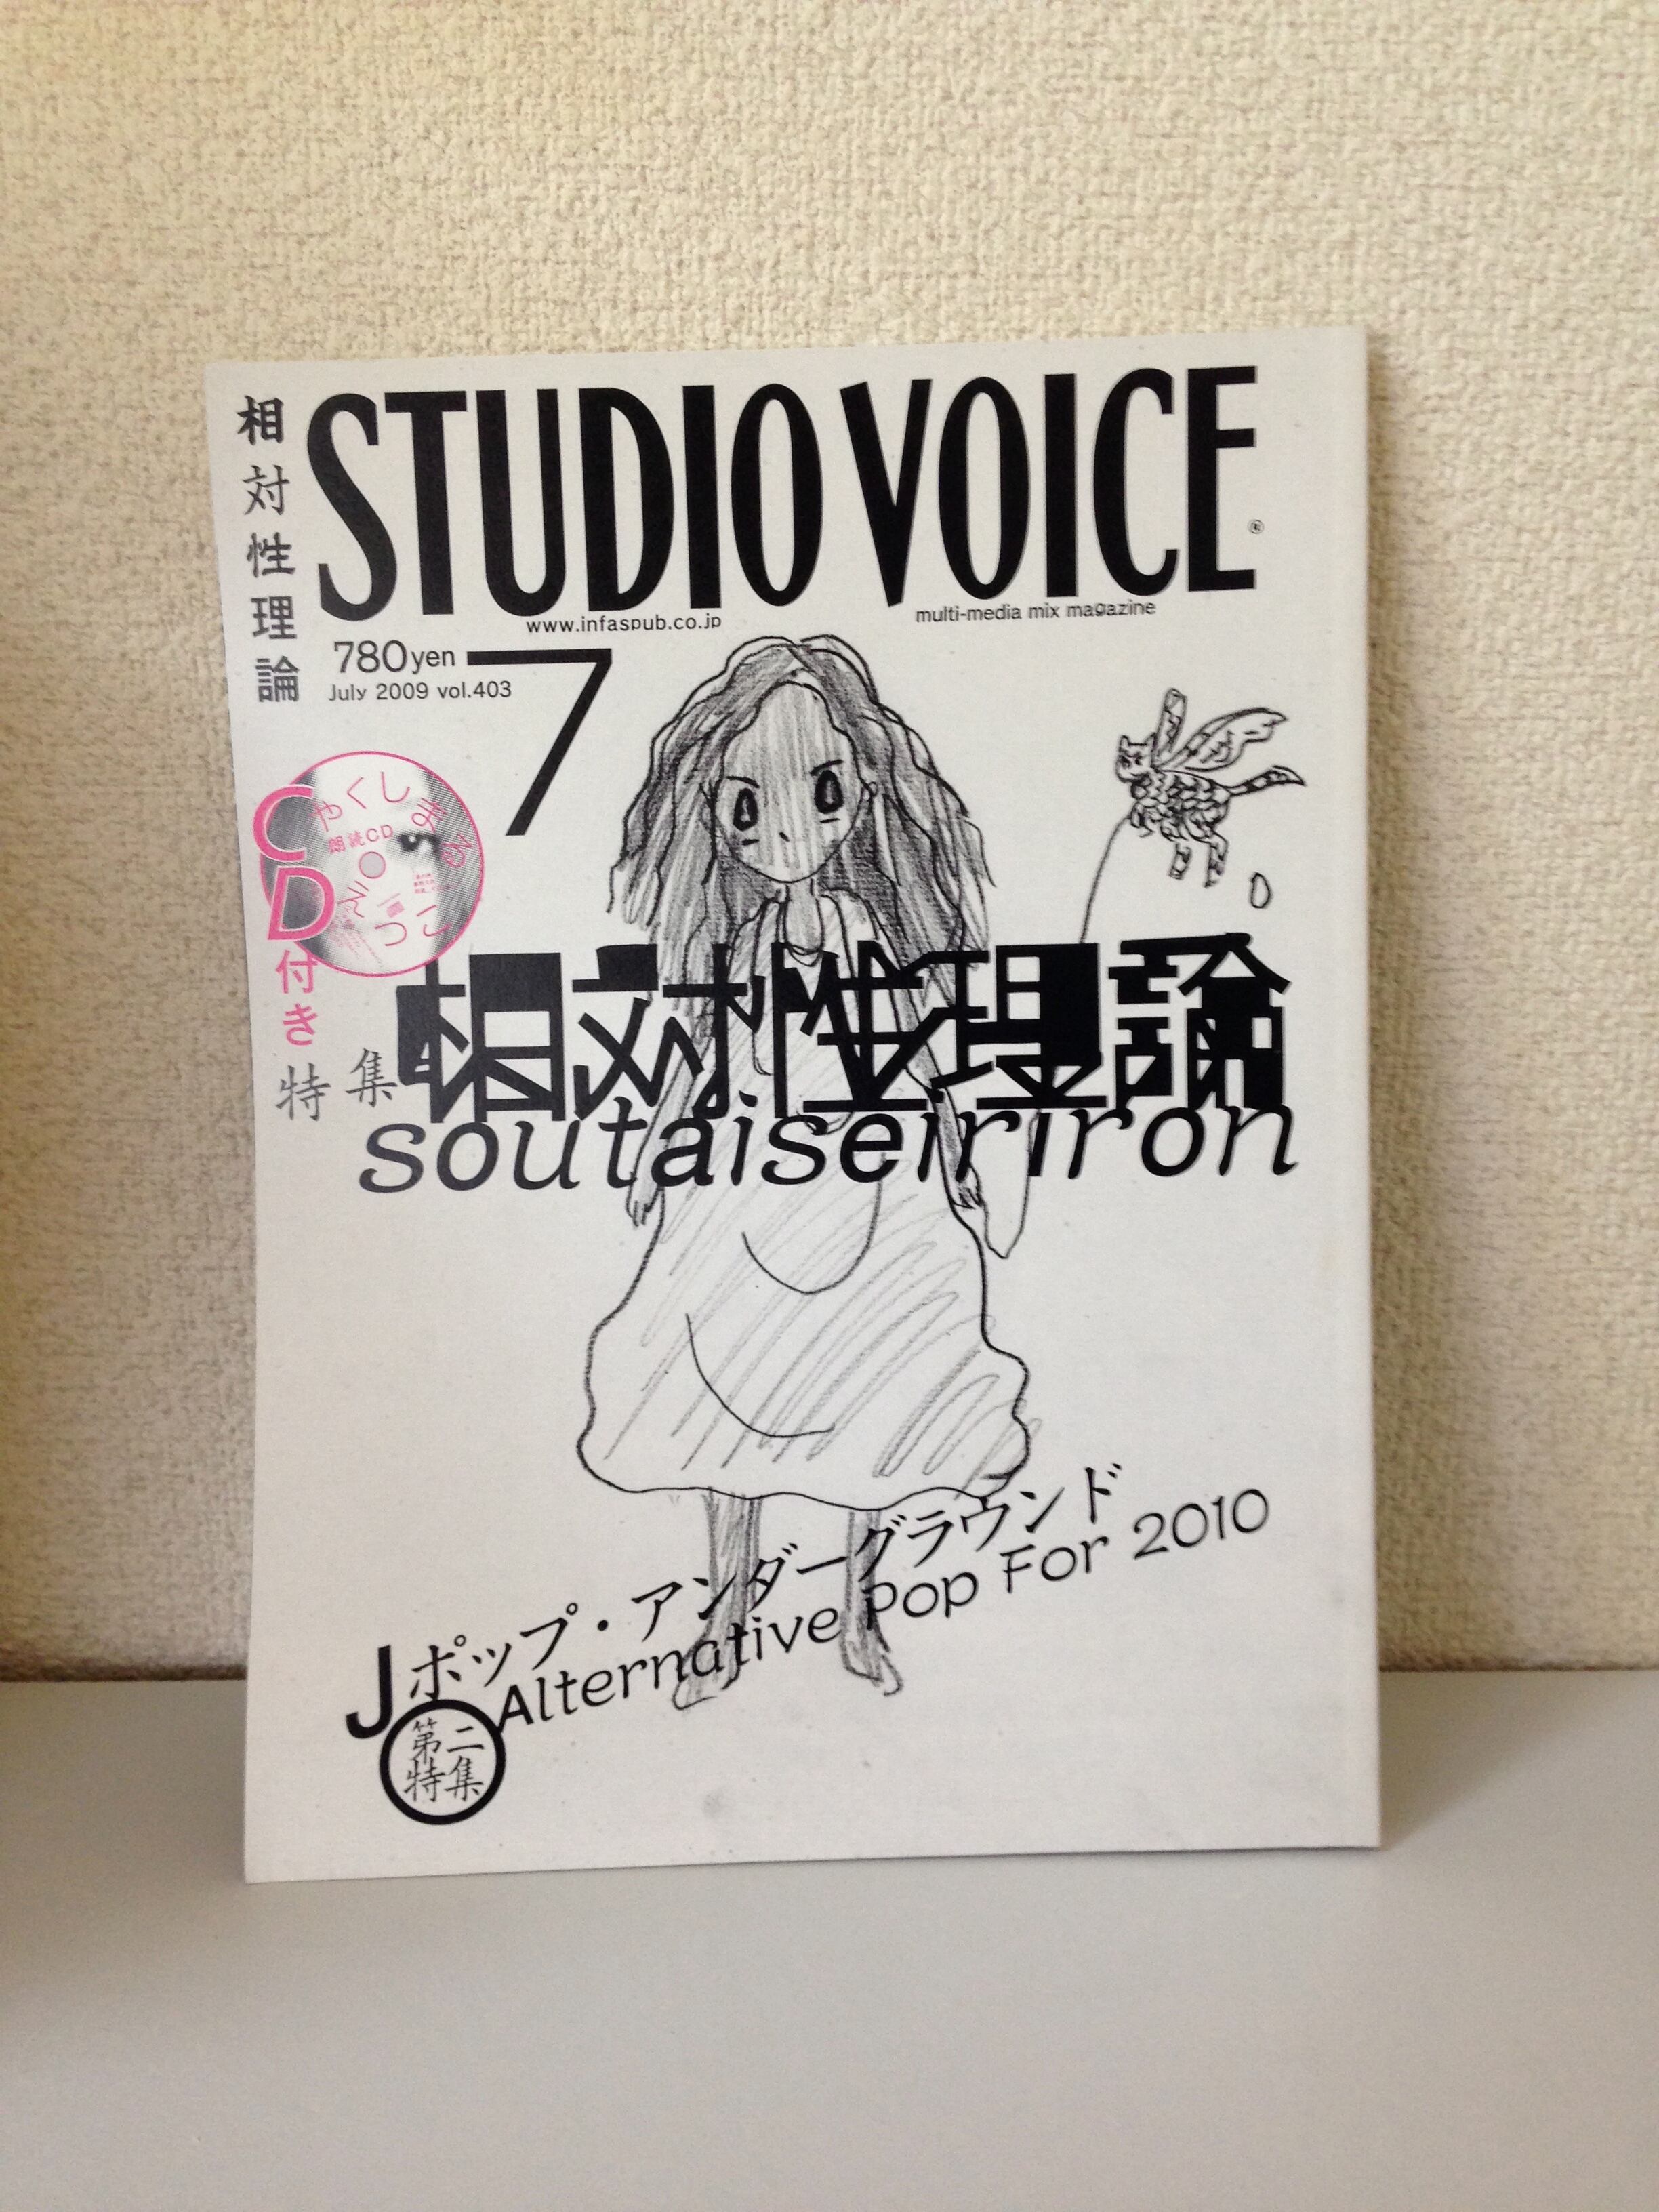 相対性理論
STUDIO VOICE
www.infaspub.co.jp
multi-media mix magazine
780yen
July 2009 vol.403
7
CD付き
やくしまるえつこ
朗読CD
特集
相対性理論
soutaiseiriron
Jポップ・アンダーグラウンド
Alternative Pop For 2010
第二
特集